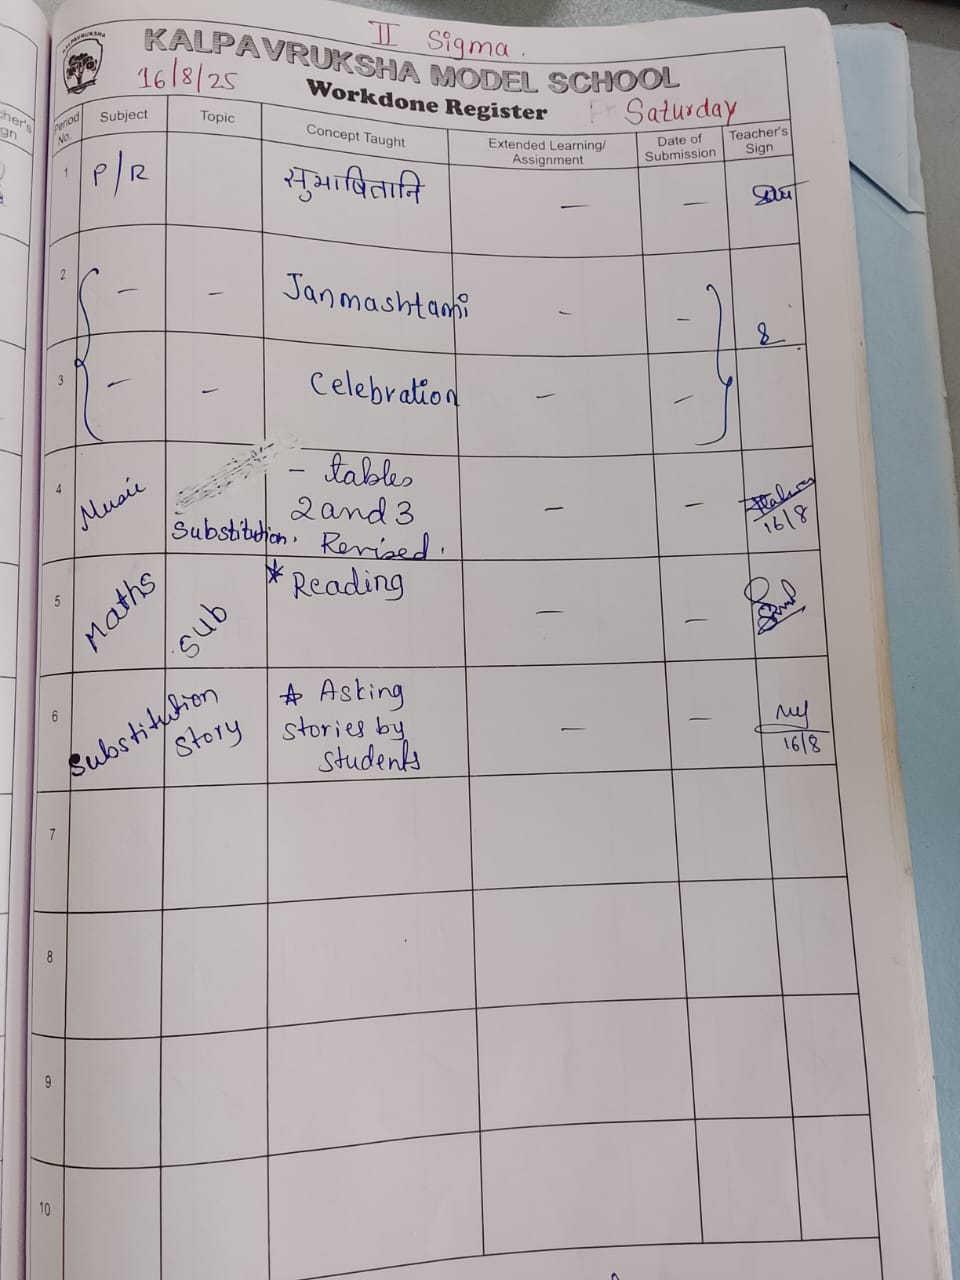 II Sigma.
KALPAVRUKSHA
KALPAVRUKSHA MODEL SCHOOL
16/8/25
Workdone Register
Saturday
Period No. Subject Topic Concept Taught Extended Learning/ Assignment Date of Submission Teacher's Sign
1 P/R सुभाषितानि — —
2 — — Janmashtami — —
3 — — Celebration — —
4 Music Substitution. - tables
2 and 3
Revised. — — 16/8
5 Maths Sub * Reading — —
6 Substitution story * Asking
stories by
students — — 16/8
7
8
9
10